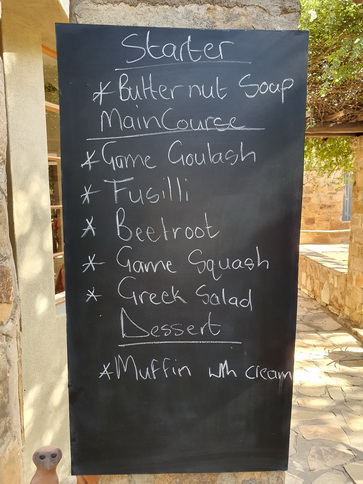 Starter
* Butternut Soap
Main Course
* Game Goulash
* Fusilli
* Beetroot
* Game Squash
* Greek Salad
Dessert
* Muffin with cream